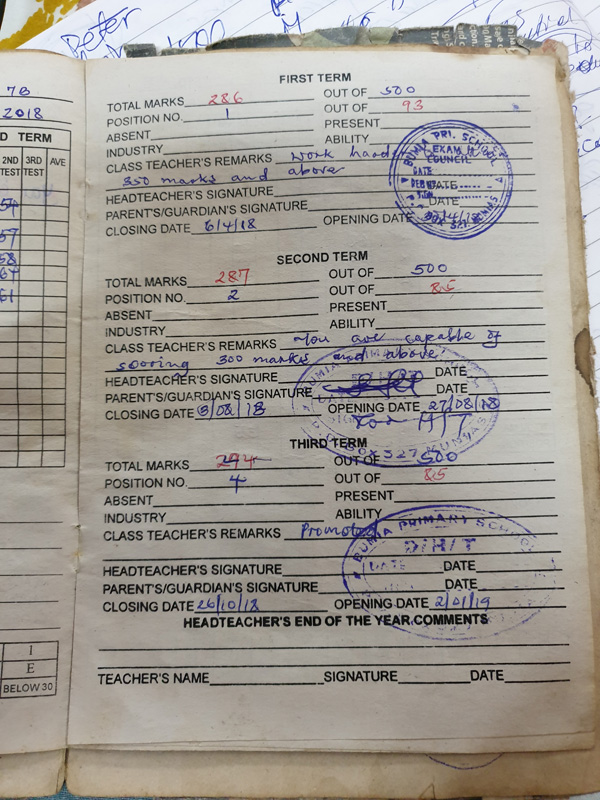 Peter
7B
2018
D TERM
2ND TEST 3RD TEST AVE
57
58
67
61
I
E
BELOW 30
FIRST TERM
TOTAL MARKS 286 OUT OF 500
POSITION NO. 1 OUT OF 93
ABSENT PRESENT
INDUSTRY ABILITY
CLASS TEACHER'S REMARKS Work hard
350 marks and above
HEADTEACHER'S SIGNATURE DATE
PARENT'S/GUARDIAN'S SIGNATURE DATE
CLOSING DATE 6/4/18 OPENING DATE
BUMIA PRI. SCHOOL
EXAM
COUNCIL
DATE
SECOND TERM
TOTAL MARKS 287 OUT OF 500
POSITION NO. 2 OUT OF 85
ABSENT PRESENT
INDUSTRY ABILITY
CLASS TEACHER'S REMARKS You are capable of
scoring 300 marks and above
HEADTEACHER'S SIGNATURE DATE
PARENT'S/GUARDIAN'S SIGNATURE DATE
CLOSING DATE 3/08/18 OPENING DATE 27/08/18
For H/T
BOX 327
THIRD TERM
TOTAL MARKS 294 OUT OF 500
POSITION NO. 4 OUT OF 85
ABSENT PRESENT
INDUSTRY ABILITY
CLASS TEACHER'S REMARKS Promoted
BUMIA PRIMARY SCHOOL
D/H/T
DATE
HEADTEACHER'S SIGNATURE DATE
PARENT'S/GUARDIAN'S SIGNATURE DATE
CLOSING DATE 26/10/18 OPENING DATE 2/01/19
HEADTEACHER'S END OF THE YEAR COMMENTS
TEACHER'S NAME SIGNATURE DATE